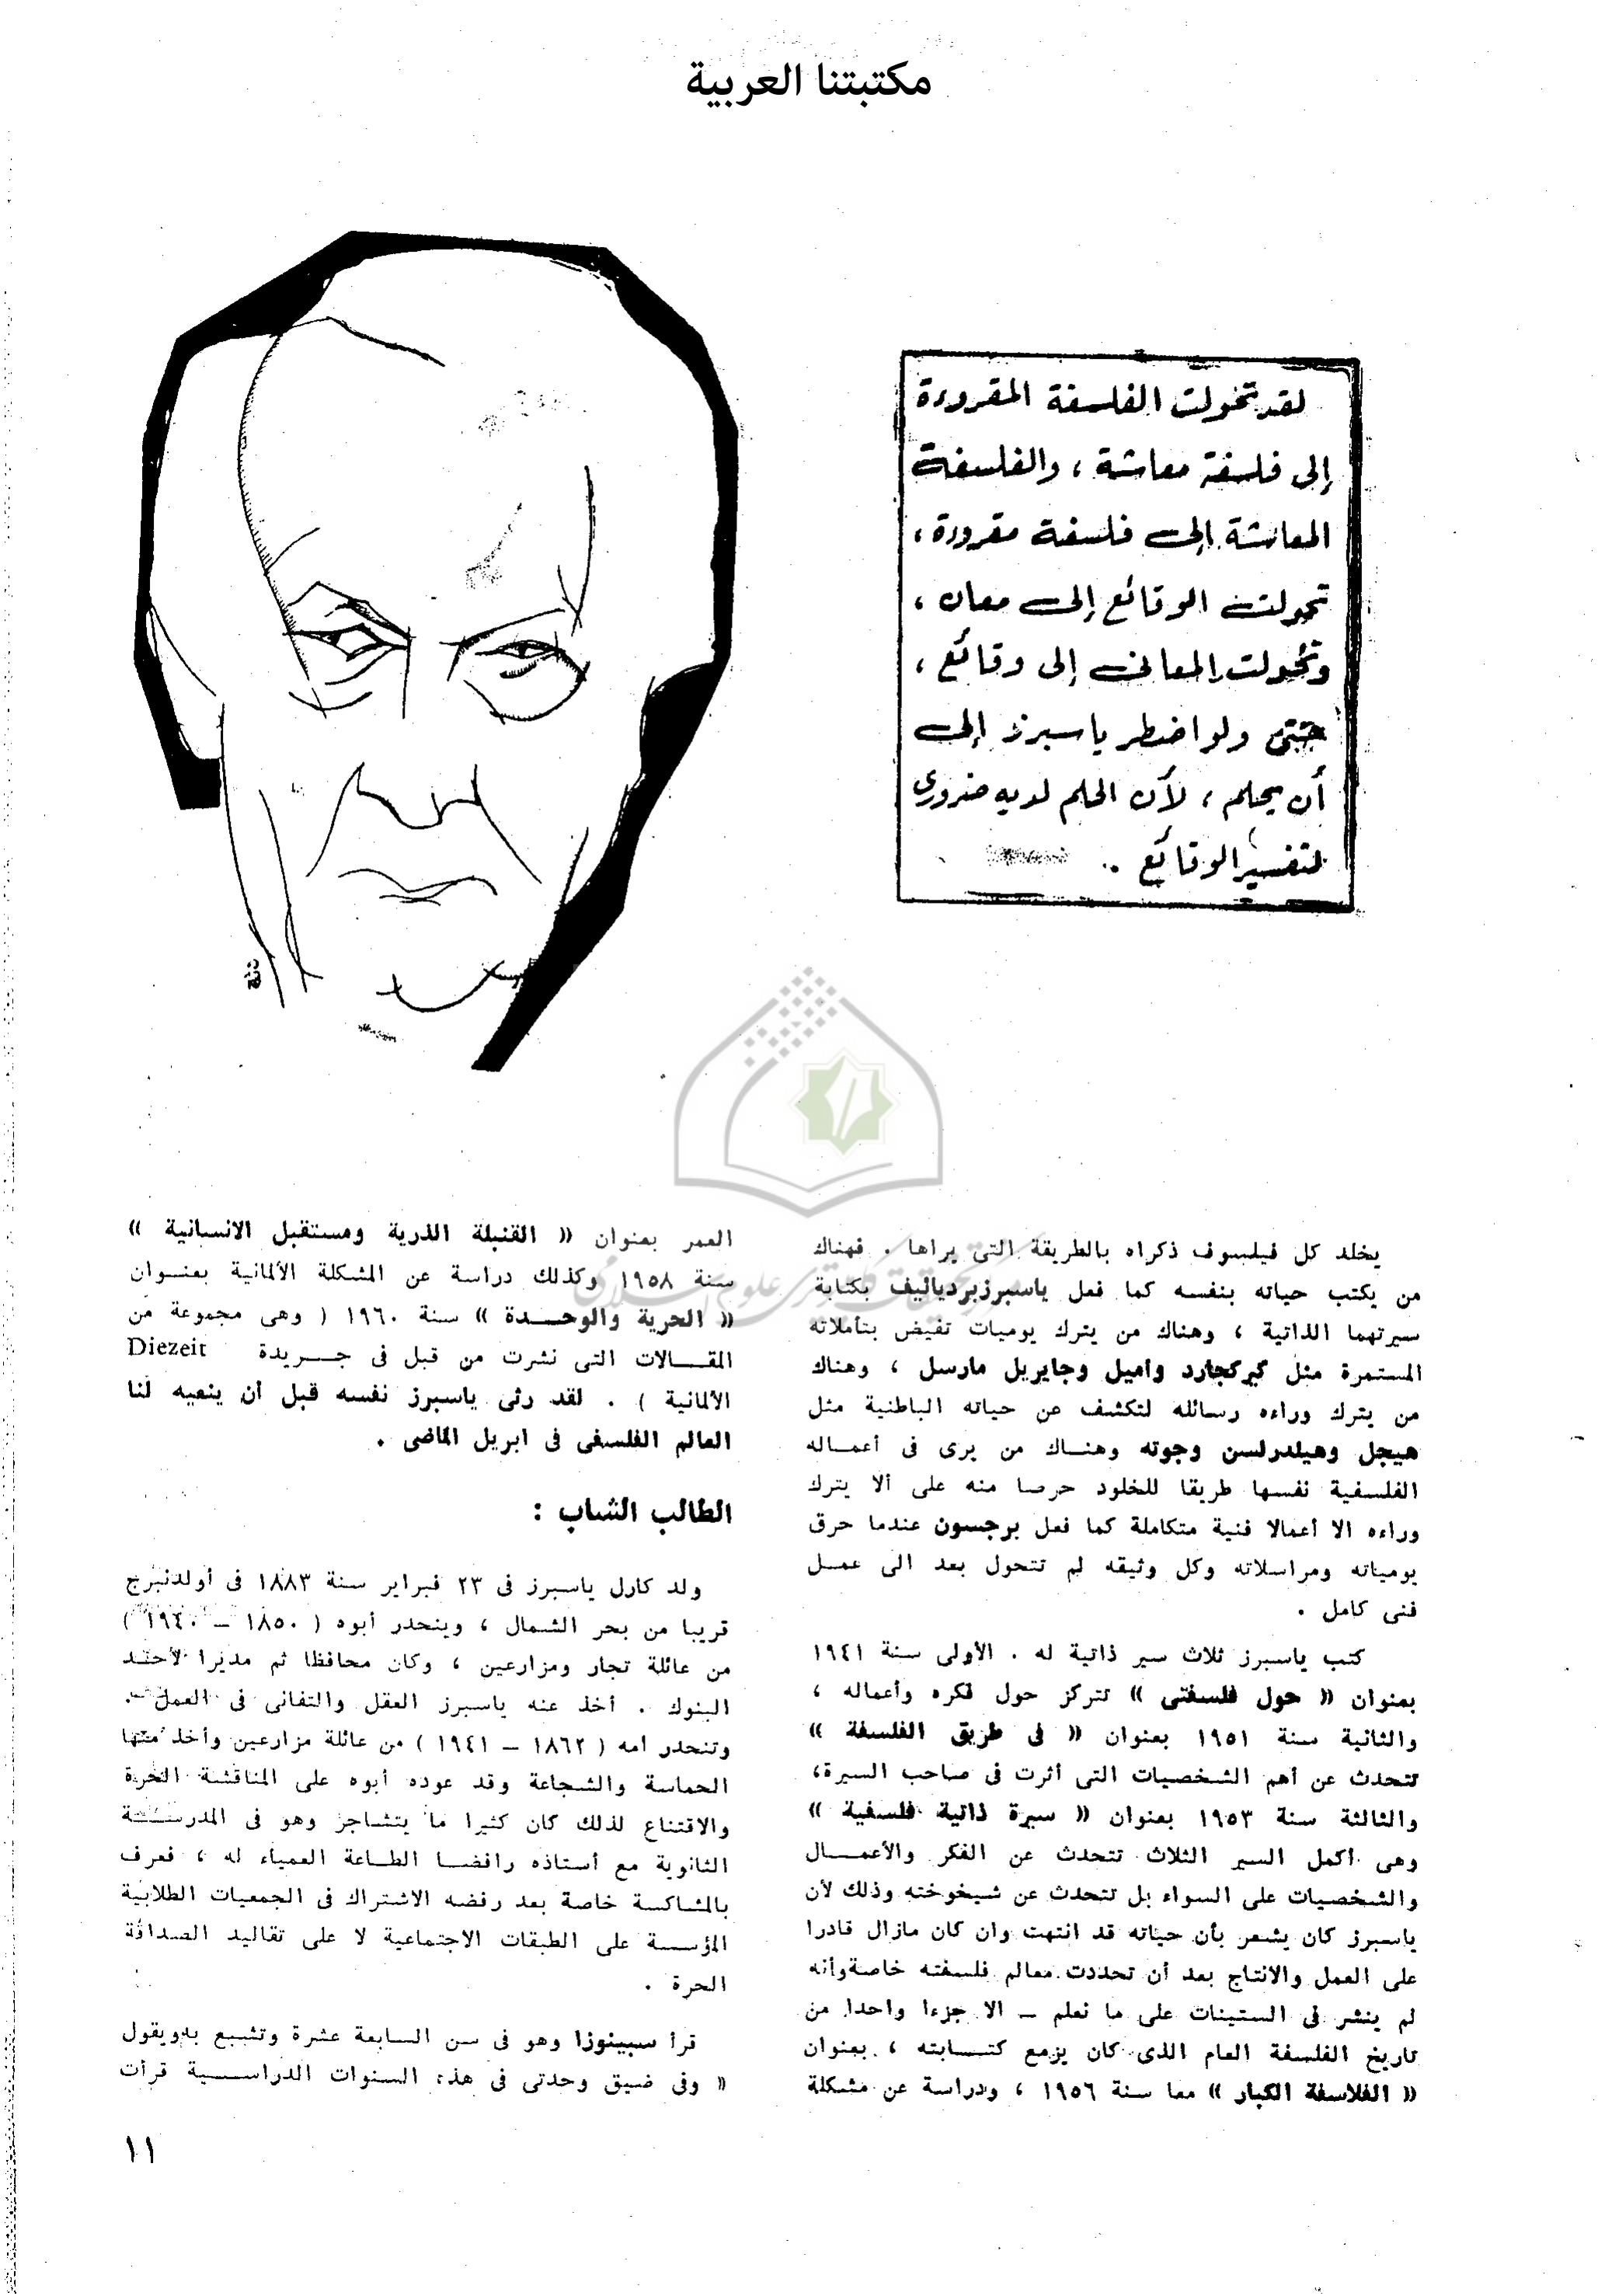 مكتبتنا العربية
لقد تحولت الفلسفة المقروءة
إلى فلسفة معاشة ، والفلسفة
المعاشة إلى فلسفة مقروءة ،
تحولت الوقائع إلى معان ،
وتحولت المعانى إلى وقائع ،
حتى ولو اضطر ياسبرز إلى
أن يحلم ، لأن الحلم لديه ضرورى
لتفسير الوقائع ..
يخلد كل فيلسوف ذكراه بالطريقة التى يراها . فهناك
من يكتب حياته بنفسه كما فعل ياسبرزبردياليف بكتابة
سيرتهما الذاتية ، وهناك من يترك يوميات تفيض بتأملاته
المستمرة مثل كيركجارد وأميل وجابريل مارسل ، وهناك
من يترك وراءه رسائله لتكشف عن حياته الباطنية مثل
هيجل وهيلدرلسن وجوته وهنــاك من يرى فى أعمــاله
الفلسفية نفسها طريقا للخلود حرصا منه على ألا يترك
وراءه الا أعمالا فنية متكاملة كما فعل برجسون عندما حرق
يومياته ومراسلاته وكل وثيقه لم تتحول بعد الى عمــل
فنى كامل .
كتب ياسبرز ثلاث سير ذاتية له . الأولى سنة ١٩٤١
بعنوان « حول فلسفتى » تتركز حول فكره وأعماله ،
والثانية سنة ١٩٥١ بعنوان « فى طريق الفلسفة »
تتحدث عن أهم الشخصيات التى أثرت فى صاحب السيرة،
والثالثة سنة ١٩٥٣ بعنوان « سيرة ذاتية فلسفية »
وهى أكمل السير الثلاث تتحدث عن الفكر والأعمــال
والشخصيات على السواء بل تتحدث عن شيخوخته وذلك لأن
ياسبرز كان يشعر بأن حياته قد انتهت وان كان مازال قادرا
على العمل والانتاج بعد أن تحددت معالم فلسفته خاصةوأنه
لم ينشر فى الستينات على ما نعلم – الا جزءا واحدا من
تاريخ الفلسفة العام الذى كان يزمع كتــابته ، بعنوان
« الفلاسفة الكبار » معا سنة ١٩٥٦ ، ودراسة عن مشكلة
العمر بعنوان « القنبلة الذرية ومستقبل الانسانية »
سنة ١٩٥٨ وكذلك دراسة عن المشكلة الألمانية بعنــوان
« الحرية والوحــدة » سنة ١٩٦٠ ( وهى مجموعة من
المقــالات التى نشرت من قبل فى جــريدة Diezeit
الألمانية ) . لقد رثى ياسبرز نفسه قبل أن ينعيه لنا
العالم الفلسفى فى ابريل الماضى .
الطالب الشاب :
ولد كارل ياسبرز فى ٢٣ فبراير سنة ١٨٨٣ فى أولدنبرج
قريبا من بحر الشمال ، وينحدر أبوه ( ١٨٥٠ – ١٩٤٠ )
من عائلة تجار ومزارعين ، وكان محافظا ثم مديرا لأحــد
البنوك . أخذ عنه ياسبرز العقل والتفانى فى العمل .
وتنحدر أمه ( ١٨٦٢ – ١٩٤١ ) من عائلة مزارعين وأخذ منها
الحماسة والشجاعة وقد عوده أبوه على المناقشة الحرة
والاقتناع لذلك كان كثيرا ما يتشاجر وهو فى المدرســة
الثانوية مع أستاذه رافضــا الطاعة العمياء له ، فعرف
بالمشاكسة خاصة بعد رفضه الاشتراك فى الجمعيات الطلابية
المؤسسة على الطبقات الاجتماعية لا على تقاليد الصداقة
الحرة .
قرأ سبينوزا وهو فى سن السابعة عشرة وتشبع به ويقول
« وفى ضيق وحدتى فى هذه السنوات الدراســية قرأت
١١